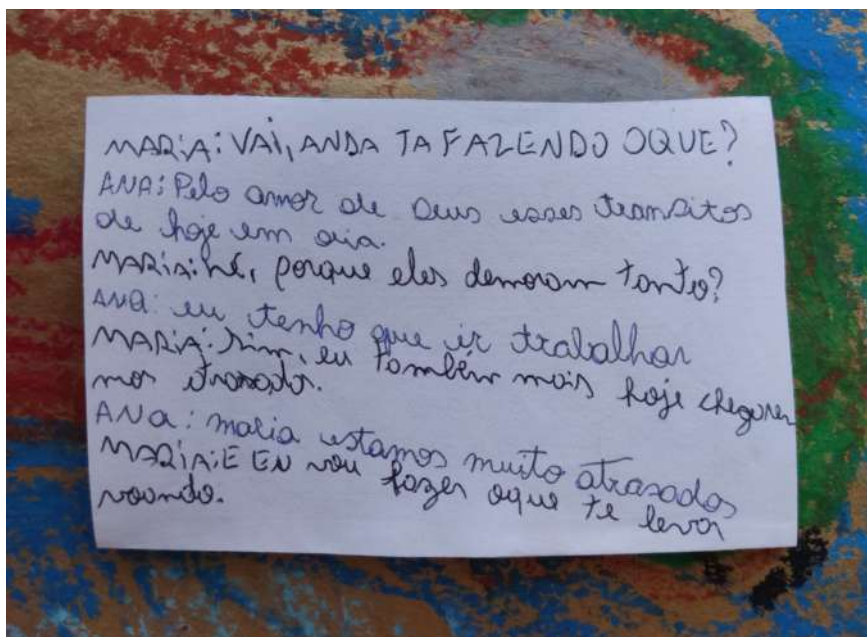 MARIA: VAI, ANDA TA FAZENDO OQUE?
ANA: Pelo amor de Deus esses transitos
de hoje em dia.
MARIA: né, porque eles demoram tanto?
ANA: eu tenho que ir trabalhar
MARIA: sim, eu também mais hoje chegare
mos atrasados.
ANA: maria estamos muito atrasados
MARIA: E EU vou fazer oque te levar
voando.